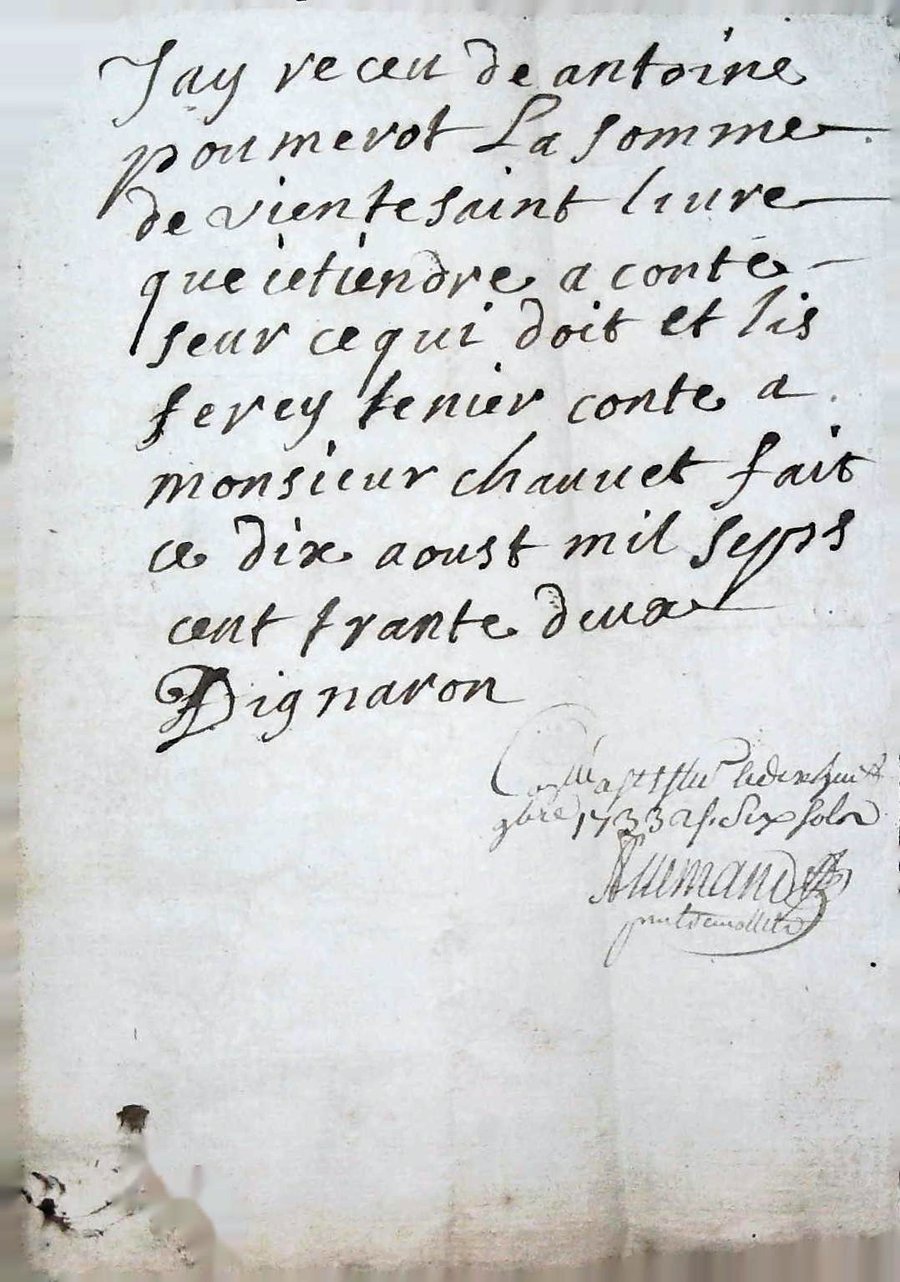 Jay receu de antoine
poumerot La somme
de vientesaint liure
que ietiendre a conte
seur ce qui doit et lis
ferey tenier conte a
monsieur chauuet fait
ce dix aoust mil seps
cent trante deux
Dignaron
9bre 1733 six solz
Allemand